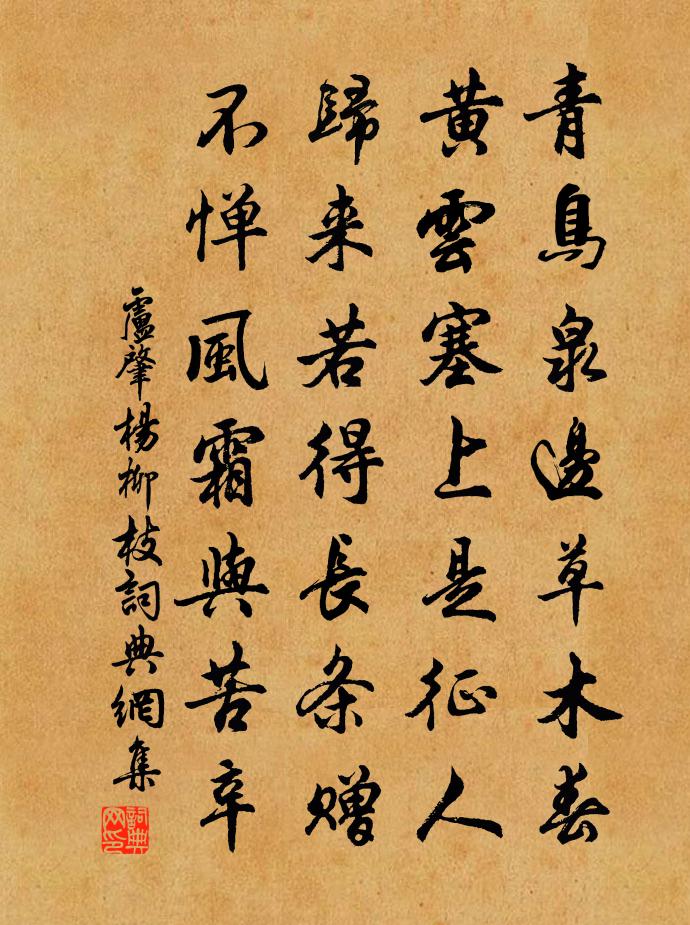 青鳥泉邊草木春
黃雲塞上是征人
歸来若得長条贈
不惮風霜與苦辛
盧肇楊柳枝詞典網集
詞典网印